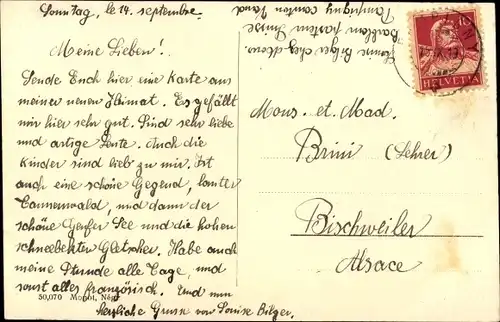 Sonntag, le 14. septembre.
Meine Lieben!
Sende Euch hier eine Karte aus
meiner neuen Heimat. Es gefällt
mir hier sehr gut. Sind sehr liebe
und artige Leute. Auch die
Kinder sind lieb zu mir. Ist
auch eine schöne Gegend, lauter
Tannenwald, und dann der
schöne Genfer See und die hohen
schneebekten Gletscher. Habe auch
meine Stunde alle Tage, und
sonst alles französisch. Und nun
herzliche Grüsse von Louise Bilger.
50,070 Mopot, Nég.
Louise Bilger chez Mons.
Barblan pasteur Suisse
canton Vaud
10
HELVETIA
Mons. et. Mad.
Brini (Lehrer)
Bischweiler
Alsace